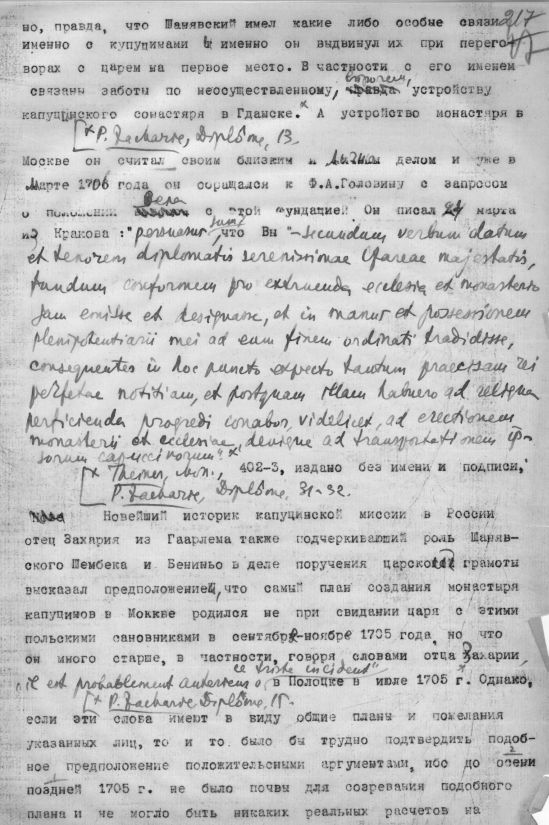 217
но, правда, что Шанявский имел какие либо особые связи
именно с купуцинами и именно он выдвинул их при перего-
ворах с царем на первое место. В частности с его именем
связаны заботы по неосуществленному, впрочем, устройству
капуцинского сонастяря в Гданске.x А устройство монастяря в
[x P. Zacharie, Diplôme, 13.
Москве он считал своим близким и личным делом и уже в
Марте 1706 года он соращался к Ф.А.Головину с запросом
о положении дела с этой фундацией Он писал 24 марта
из Кракова: "persuasus sum, что Вы "-secundum verbum datum
et tenorem diplomatis serenissimae Czareae majestatis,
fundum conformem pro extruenda ecclesia et monasterio
jam emisse et designasse, et in manus et possessionem
plenipotentiarii mei ad eum finem ordinati tradidisse,
consequenter in hoc puncto expecto tantum praecisam rei
perfectae notitiam, et postquam illam habuero ad reliqua
perficienda progredi conabor, videlicet, ad erectionem
monasterii et ecclesiae, denique ad transportationem ip-
sorum capuccinorum".x
[x Theiner, Mon., 402-3, издано без имени и подписи,
P. Zacharie, Diplôme, 31-32.
Новейший историк капуцинской миссии в России
отец Захария из Гаарлема также подчеркивающий роль Шаняв-
ского Шембека и Бениньо в деле поручения царской грамоты
высказал предположение, что самый план создания монастыря
капуцинов в Моккве родился не при свидании царя с этими
польскими сановниками в сентябре-ноябре 1705 года, но что
он много старше, в частности, говоря словами отца Захарии,
"il est probablement antérieur à ce triste incident" в Полоцке в июле 1705 г.x Однако,
[x P. Zacharie, Diplôme, 15.
если эти слова имеют в виду общие планы и пожелания
указанных лиц, то и то было бы трудно подтвердить подоб-
ное предположение положительсными аргументами, ибо до осени
поздней 1705 г. не было почвы для созревания подобного
плана и не могло быть никаких реальных расчетов на